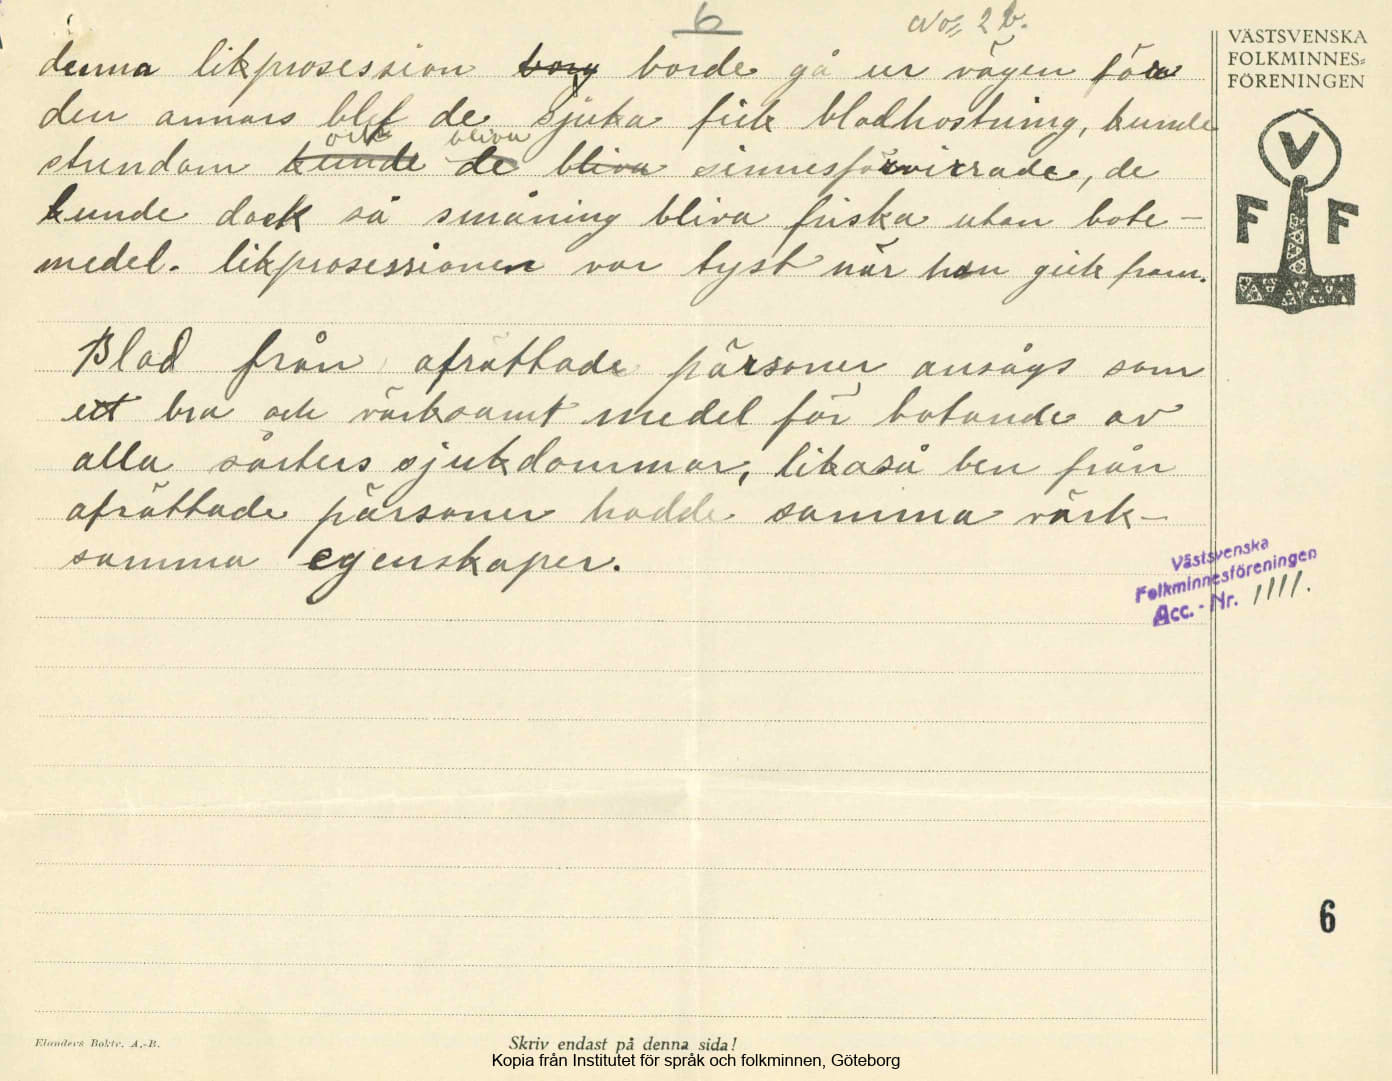 6
No 2 b.
VÄSTSVENSKA
FOLKMINNES=
FÖRENINGEN
V
F F
denna likprosession borg borde gå ur vägen före
den annars blef de sjuka fick blodhostning, kunde
och bliva
stundom kunde de bliva sinnesförvirrade, de
kunde dock så småning bliva friska utan bote-
medel. likprosessionen var tyst när han gick fram.
Blod från afrättade pärsoner ansågs som
ett bra och värksamt medel för botande av
alla sårters sjukdommar, likaså ben från
afrättade pärsoner hadde samma värk-
samma egenskaper.
Västsvenska
Folkminnesföreningen
Acc. - Nr. 1111.
6
Elanders Boktr. A.-B.
Skriv endast på denna sida!
Kopia från Institutet för språk och folkminnen, Göteborg